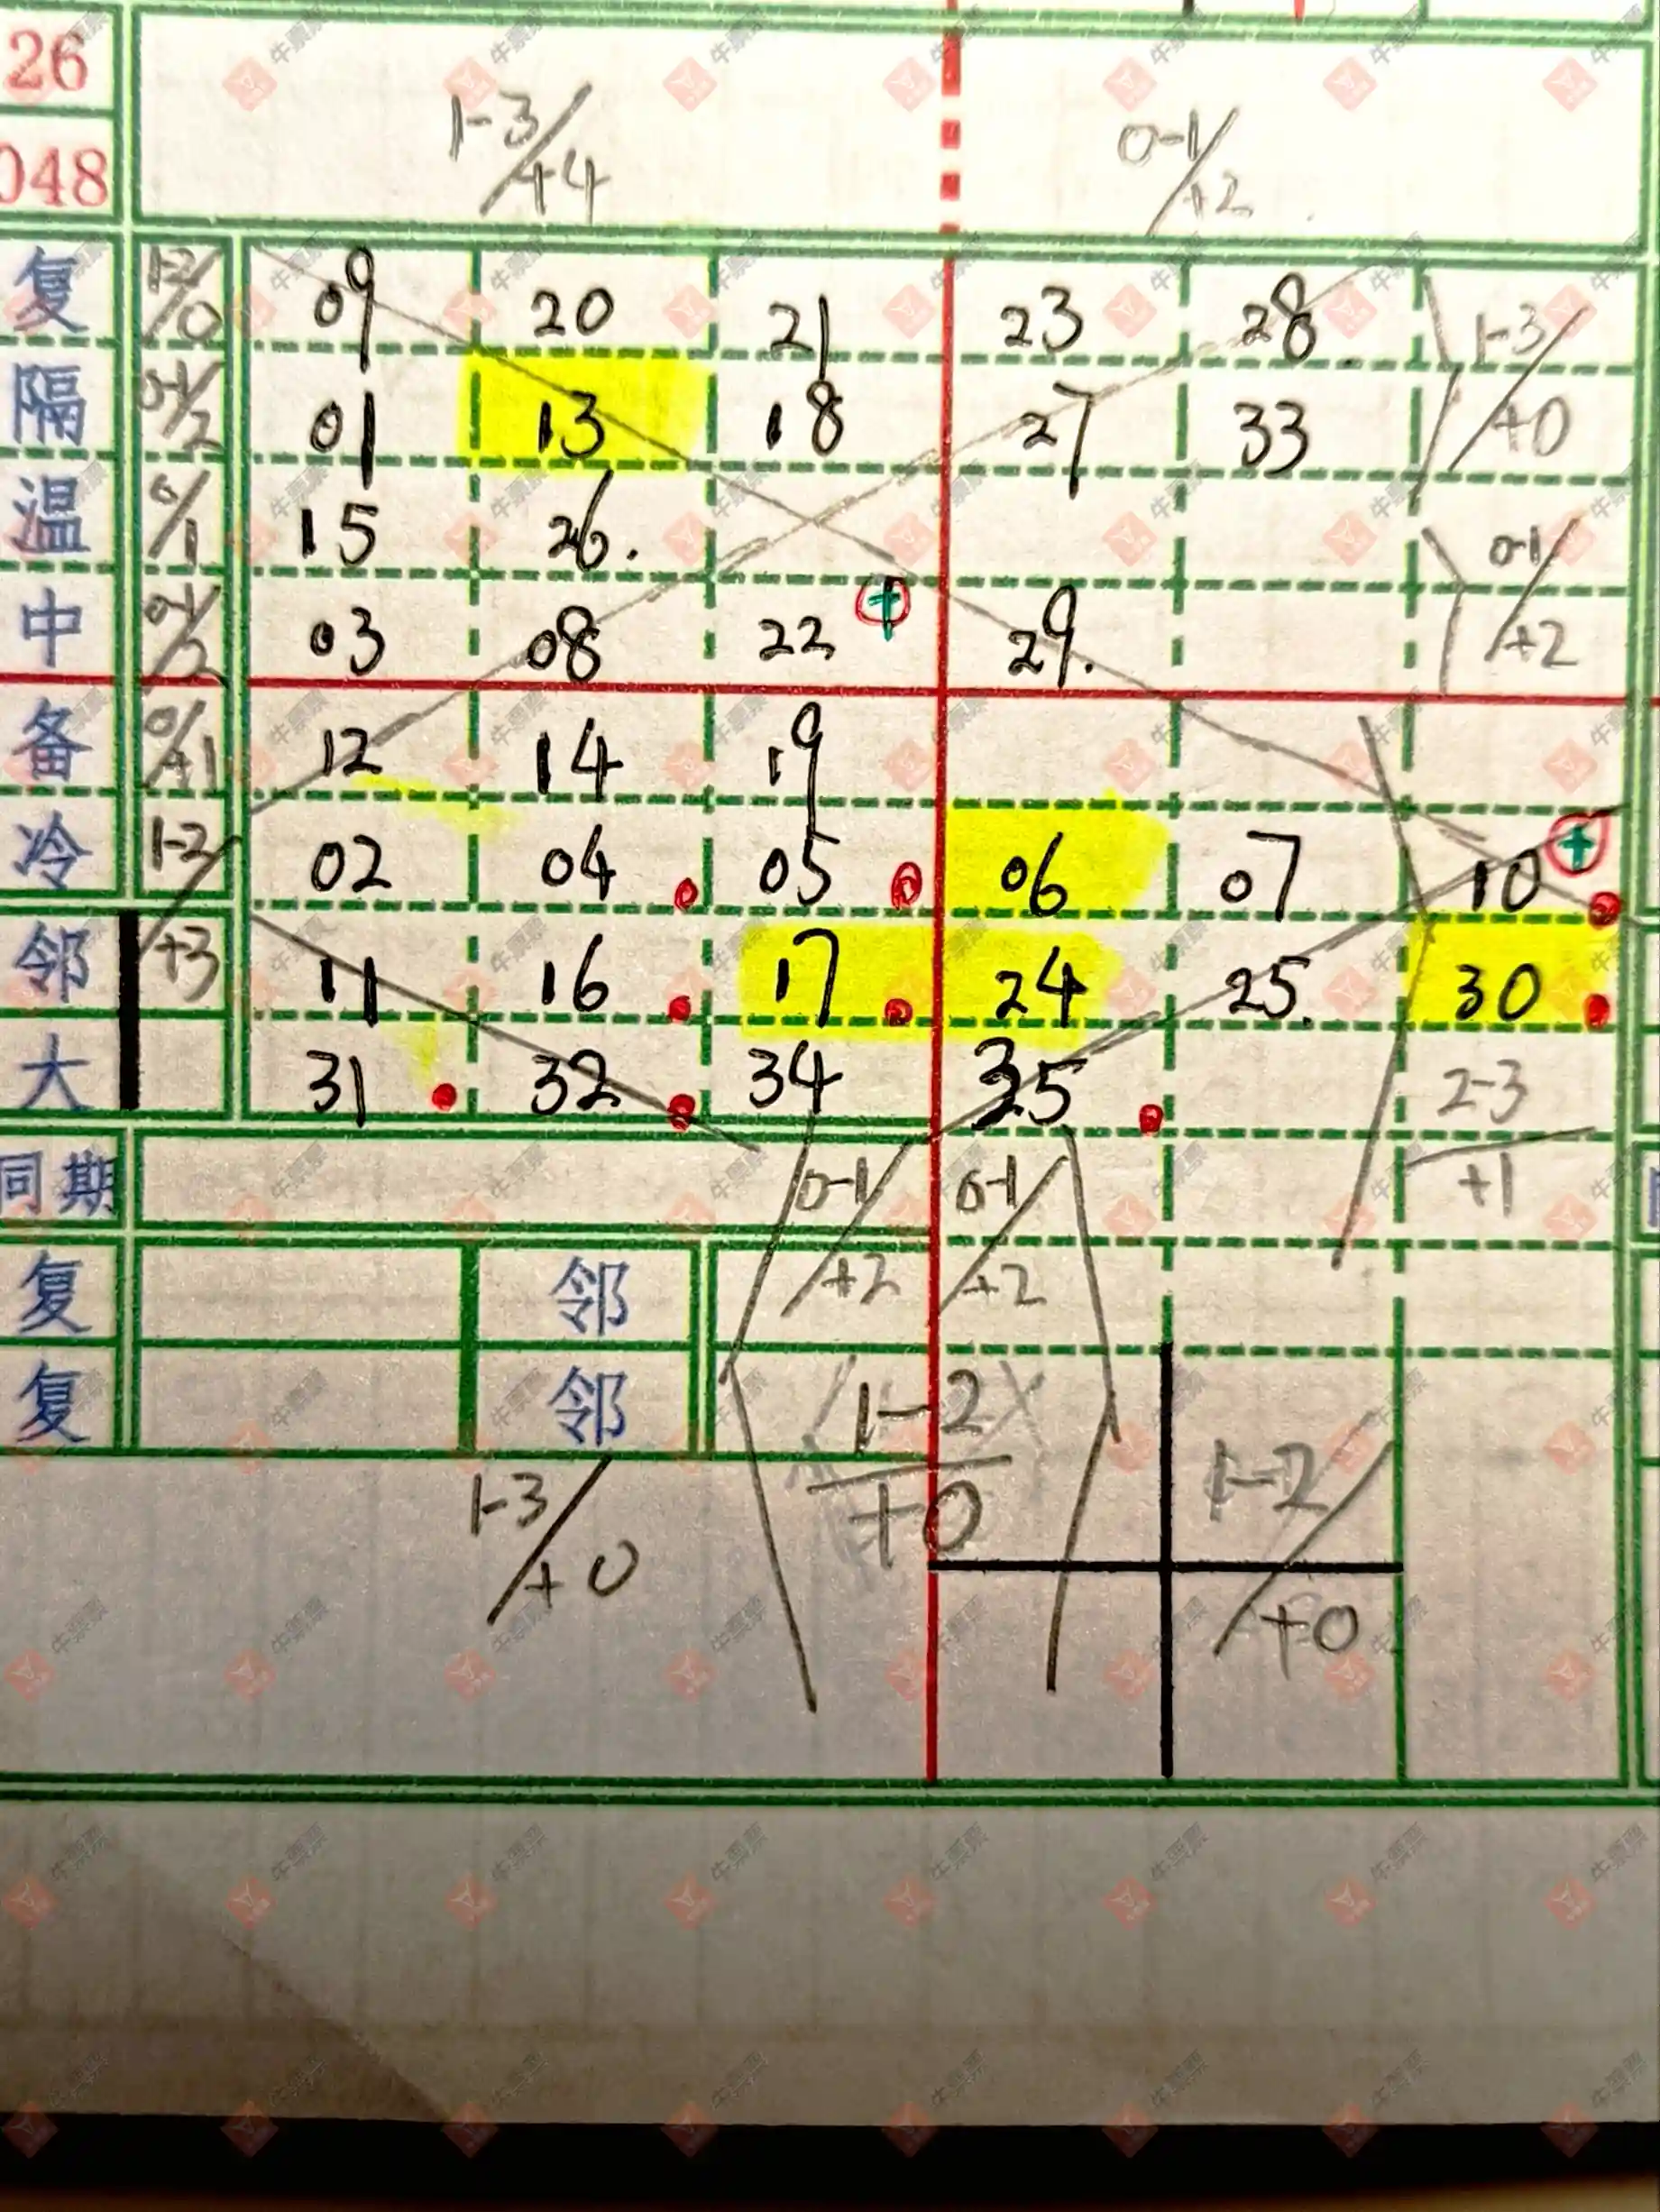 26 1-3/+4 0-1/+2
048
复 1-2/0 09 20 21 23 28 1-3/+0
隔 0-1/2 01 13 18 27 33
温 0/1 15 26. 0-1/+2
中 0-1/2 03 08 22 + 29.
备 0/+1 12 14 19
冷 1-3/+3 02 04 05 06 07 10 +
邻 11 16 17 24 25. 30
大 31 32 34 35 2-3/+1
同期 0-1/+2 0-1/+2
复 邻
复 邻 1-2/+0 1-2/+0
1-3/+0
牛票票